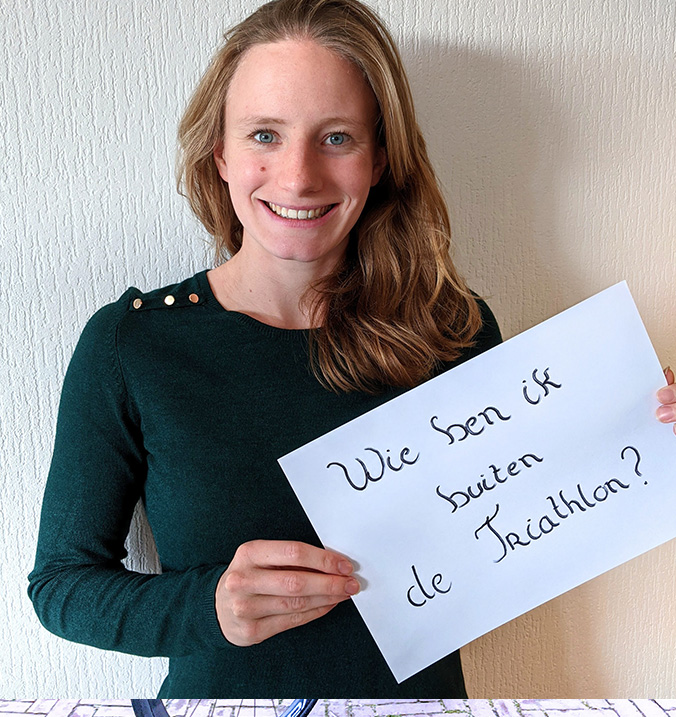 Wie ben ik
buiten
de Triathlon?